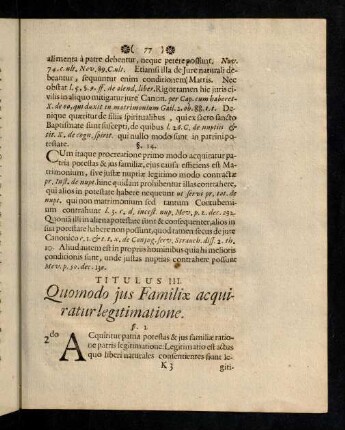 ( 77 )
alimenta à patre debentur, neque petere possunt. Nov.
74. c. ult. Nov. 89. C. ult. Etiamsi illa de Jure naturali de-
beantur, sequuntur enim conditionem Matris. Nec
obstat l. 5. §. 1. ff. de alend. liber. Rigor tamen hic juris ci-
vilis in aliquo mitigatur jure Canon. per Cap. cum haberet
X. de eo, qui duxit in matrimonium Gail. 2. ob. 88. n. 1. De-
nique quæritur de filiis spiritualibus, qui ex sacro sancto
Baptismate sunt suscepti, de quibus l. 26. C. de nuptiis &
tit. X. de cogn. spirit. qui nullo modo sunt in patriâ po-
testate.
§. 14.
CUm itaque procreatione primo modo acquiratur pa-
tria potestas & jus familiæ, ejus causa efficiens est Ma-
trimonium, sive justæ nuptiæ legitimo modo contractæ
pr. Inst. de nupt. hinc quidam prohibentur illas contrahere,
qui alios in potestate habere nequeunt ut servi pr. tot. de
nupt. qui non matrimonium sed tantum Contuberni-
um contrahunt l. 3. C. d. incest. nup. Mev. p. 2. dec. 292.
Quoniā illi in aliena potestate sunt & consequenter alios in
sua potestate habere non possunt, quod tamen secus de jure
Canonico c. 1. & t. t. x. de Conjug. serv. Strauch. diss. 2. th.
10. Aliud autem est in propriis hominibus quia hi melioris
conditionis sunt, unde justas nuptias contrahere possunt
Mev. p. 30. dec. 131.
TITULUS III.
Quomodo jus Familiæ acqui-
ratur legitimatione.
§. 1
2do ACquiritur patria potestas & jus familiæ ratio-
ne patris legitimatione: Legitimatio est actus
quo liberi naturales consentientes fiunt le-
K 3 giti-